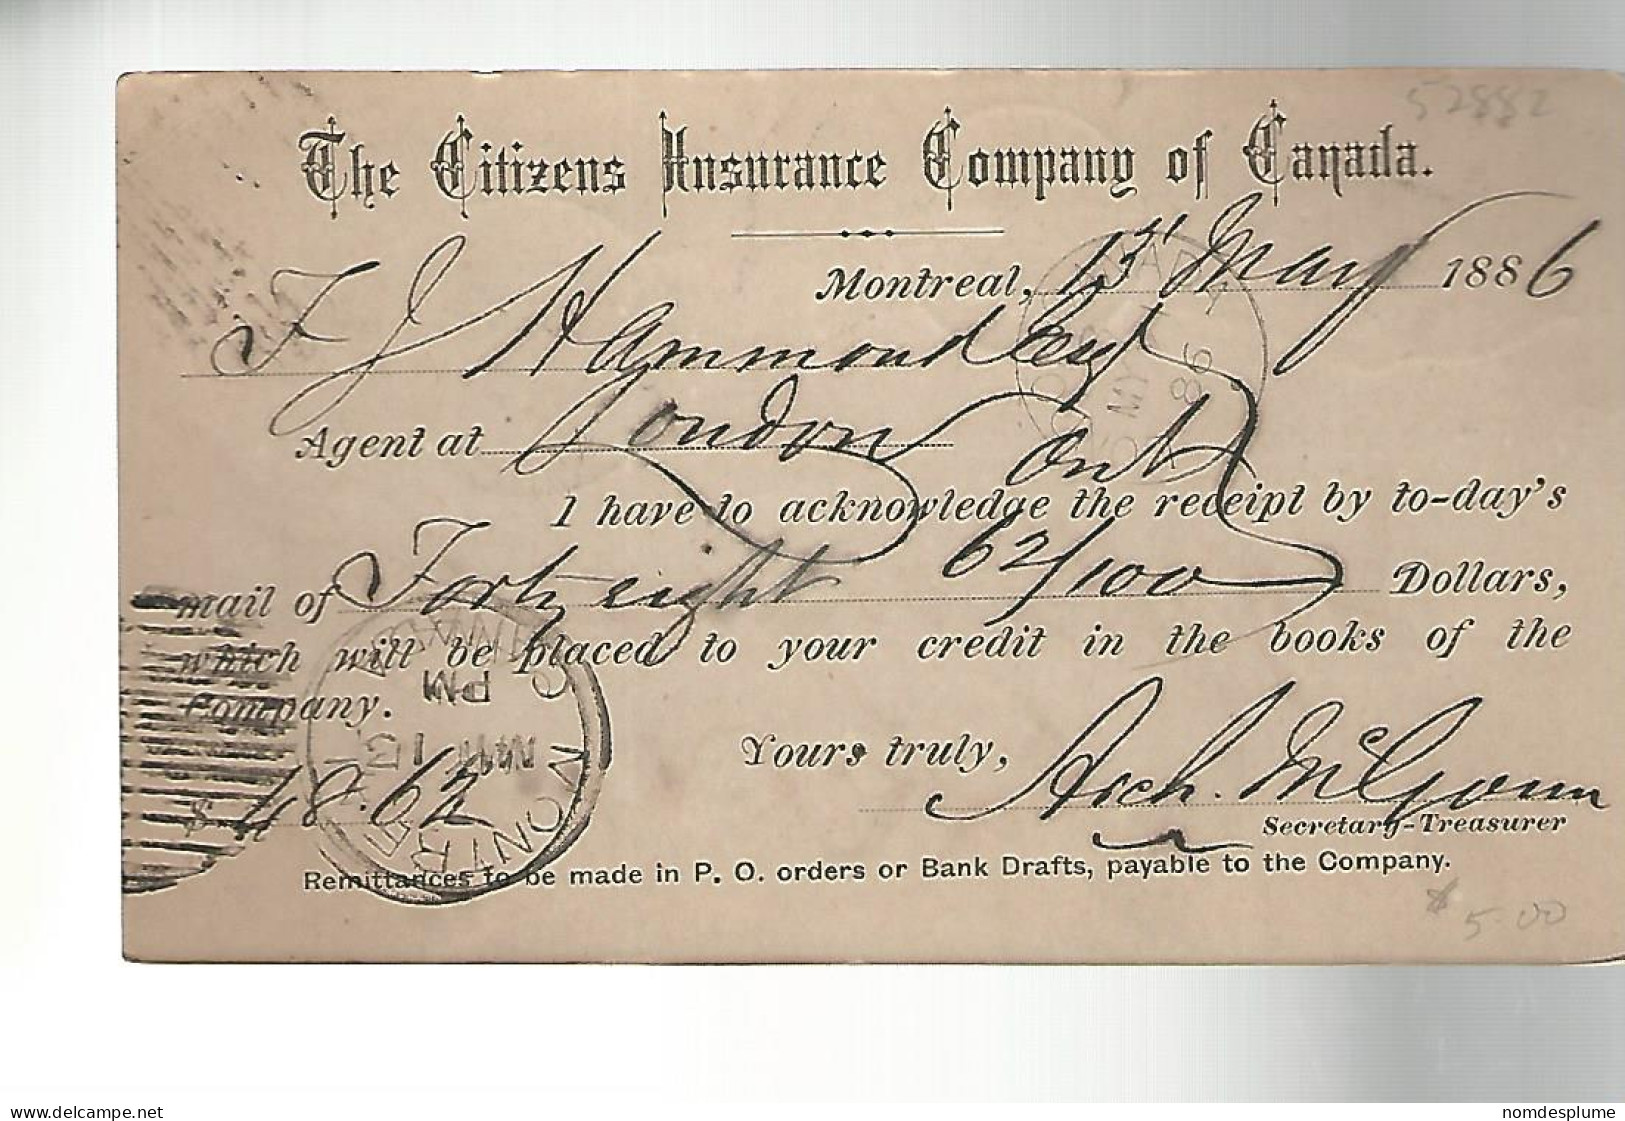 52882
The Citizens Insurance Company of Canada.
Montreal, 13" May 1886
F J Hammond Esq
Agent at London Ont
I have to acknowledge the receipt by to-day's
mail of Forty eight 62/100 Dollars,
which will be placed to your credit in the books of the
Company.
Yours truly,
$ 48.62
Arch. McGoun
Secretary-Treasurer
Remittances to be made in P. O. orders or Bank Drafts, payable to the Company.
$ 5.00
PM
MONTREAL
MY
86
delcampe.net
nomdesplume